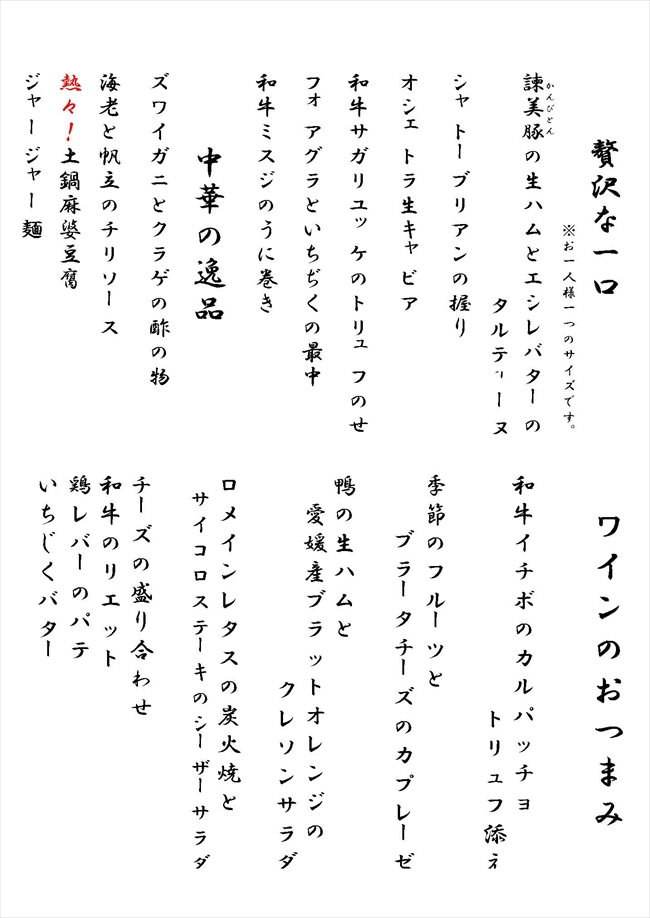 贅沢な一口
※お一人様一つのサイズです。
諫美豚の生ハムとエシレバターの
かんびとん
タルティーヌ
シャトーブリアンの握り
オシェトラ生キャビア
和牛サガリユッケのトリュフのせ
フォアグラといちぢくの最中
和牛ミスジのうに巻き
中華の逸品
ズワイガニとクラゲの酢の物
海老と帆立のチリソース
熱々！土鍋麻婆豆腐
ジャージャー麺
ワインのおつまみ
和牛イチボのカルパッチョ
トリュフ添え
季節のフルーツと
ブラータチーズのカプレーゼ
鴨の生ハムと
愛媛産ブラットオレンジの
クレソンサラダ
ロメインレタスの炭火焼と
サイコロステーキのシーザーサラダ
チーズの盛り合わせ
和牛のリエット
鶏レバーのパテ
いちじくバター